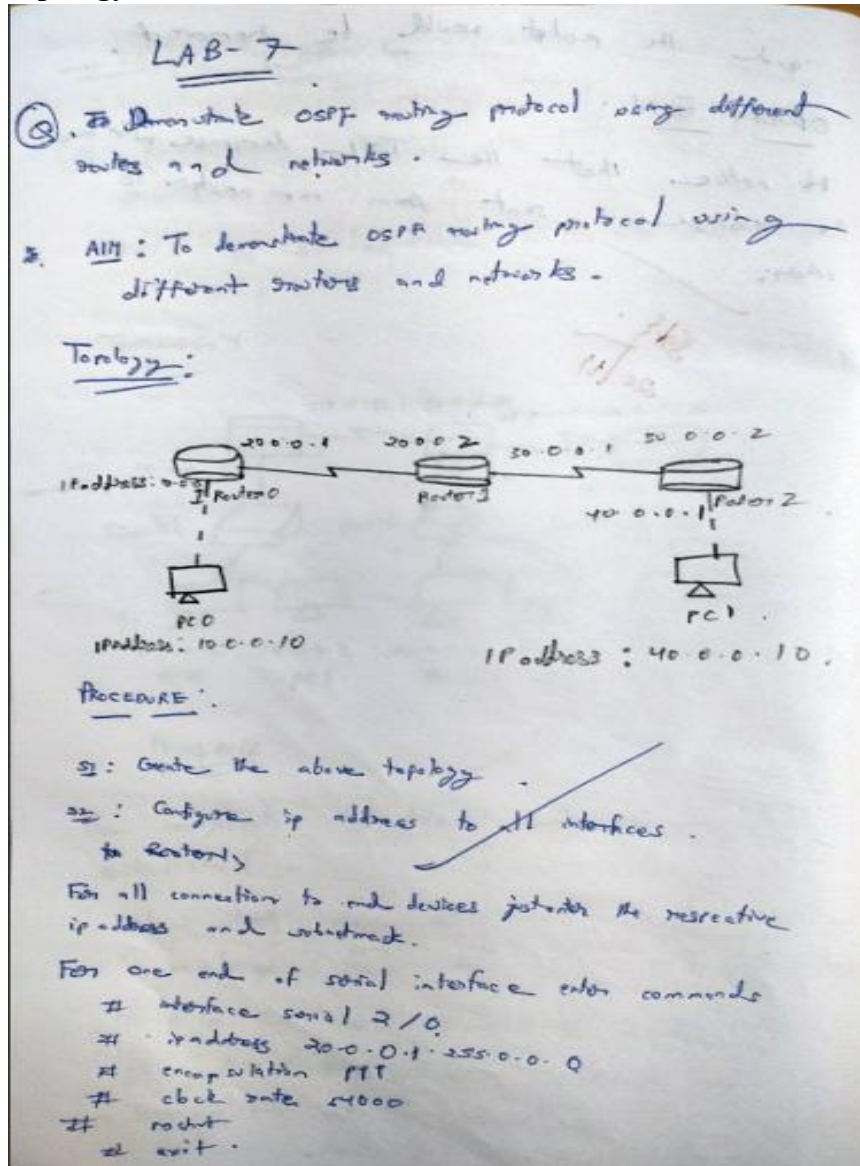 LAB-7
Q. Demonstrate OSPF routing protocol using different
routes and networks.
AIM: To demonstrate OSPF routing protocol using
different routers and networks.
Topology:
20.0.0.1 20.0.0.2 30.0.0.1 30.0.0.2
IP address:
Router0 Router1 Router2
40.0.0.1
PC0 PC1
IP address: 10.0.0.10
IP address: 40.0.0.10.
PROCEDURE:
S1: Create the above topology.
S2: Configure ip address to all interfaces.
For all connection to end devices just enter the respective
ip address and subnetmask.
For one end of serial interface enter commands
# interface serial 2/0
# ip address 20.0.0.1 255.0.0.0
# encapsulation
# clock rate
#
# exit.